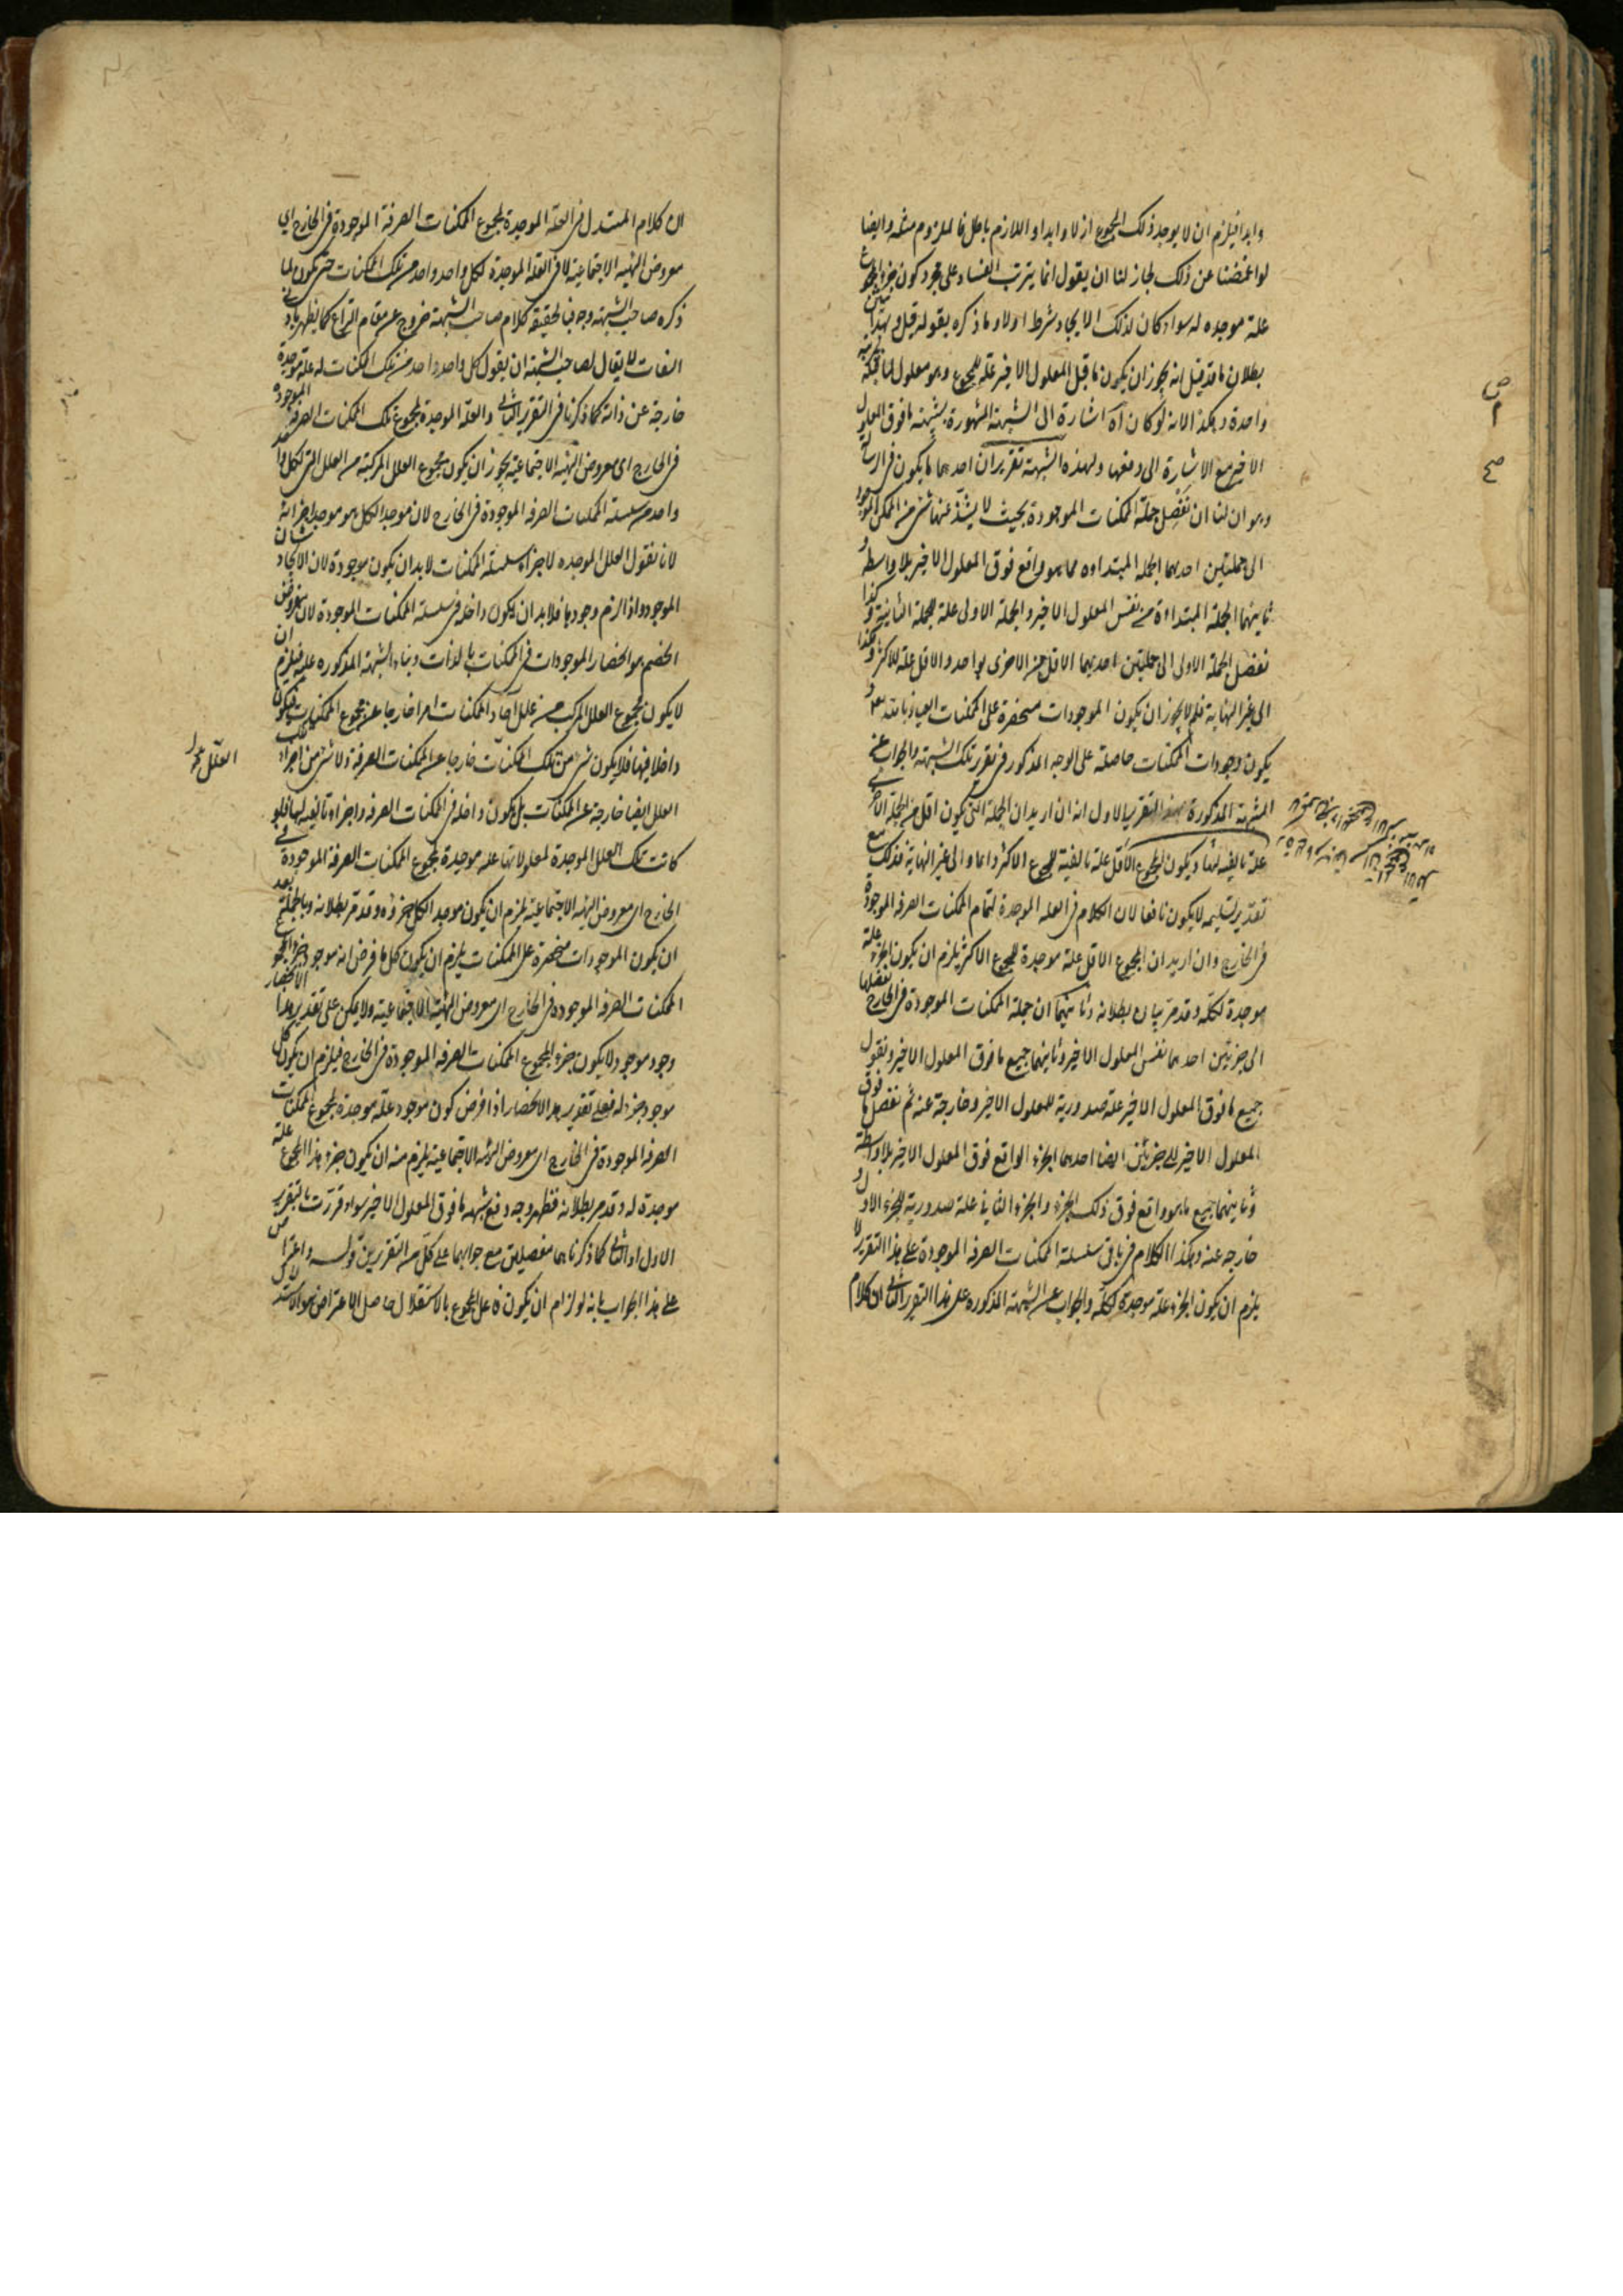 وابدا فيلزم ان لا يوجد ذلك المجموع ازلا وابدا و اللازم باطل فالملزوم مثله وايضا
لو اغمضنا عن ذلك لجاز لنا ان يقول انما يترتب الفساد على مجرد كون جزء المجموع
علة موجده له سواء كان لذلك الايجاد شرط اولا و ما ذكره بقوله قيل و بهذا يتبين
بطلان ما قد قيل انه يجوز ان يكون ما قبل المعلول الاخير علة للمجموع وهو معلول لما قبله
واحدة وهكذا لانه لو كان آه اشارة الى الشبهة المشهورة بشبهة ما فوق المعلول
الاخير مع الاشارة الى دفعها ولهذه الشبهة تقريران احدهما ما يكون في
وهو ان لنا ان نفصل جملة الممكنات الموجودة بحيث لا يشذ عنها شئ من الممكن الموجود
الى جملتين احدهما الجملة المبتداءه مما هو واقع فوق المعلول الاخير بلا واسطه و
ثانيهما الجملة المبتداءة من نفس المعلول الاخير والجملة الاولى علة للجملة الثانية وكذا
نفصل الجملة الاولى الى جملتين احديهما الاقل من الاخرى بواحد والاقل علة للاكثر وهكذا
الى غير النهاية فلم لا يجوز ان يكون الموجودات منحصرة على الممكنات العياذ بالله و
يكون وجودات الممكنات حاصلة على الوجه المذكور في تقرير تلك الشبهة والجواب عن
الشبهة المذكورة بهذا التقرير الاول انه ان اريد ان الجملة التى يكون اقل من الجملة الاخرى
علة تاليفية لها ويكون المجموع الاقل علة تاليفية للمجموع الاكثر دائما و الى غير النهاية فذلك مع
تقدير تسليمه لا يكون نافعا لان الكلام في العلة الموجدة لتمام الممكنات الصرفه الموجودة
في الخارج وان اريد ان المجموع الاقل علة موجدة للمجموع الاكثر يلزم ان يكون الجزء علة
موجدة لكله وقد مر بيان بطلانه وثانيهما ان جملة الممكنات الموجودة في الخارج نفصلها
الى جزئين احدهما نفس المعلول الاخير وثانيهما جميع ما فوق المعلول الاخير ونقول
جميع ما فوق المعلول الاخير علة صدورية للمعلول الاخير وخارجة عنه ثم نفصل ما فوق
المعلول الاخير الى جزئين ايضا احدهما الجزء الواقع فوق المعلول الاخير بلا واسطة
وثانيهما جميع ما هو واقع فوق ذلك الجزء والجزء الثاني علة صدورية للجزء الاول و
خارجه عنه وهكذا الكلام في باقى سلسلة الممكنات الصرفه الموجودة على هذا التقرير لا
يلزم ان يكون الجزء علة موجدة لكله والجواب عن الشبهة المذكوره على هذا التقرير الثاني ان كلام
ص
صح
ان كلام المستدل في العلة الموجدة لمجموع الممكنات الصرفة الموجودة في الخارج اي
معروض الهيئه الاجتماعية لا في العلة الموجدة لكل واحد واحد من تلك الممكنات حتى يكون لما
ذكره صاحب الشبهة وجه فبالحقيقه كلام صاحب الشبهة خروج عن مقام النزاع كما يظهر بادنى
التفات لا يقال لصاحب الشبهة ان يقول كل واحد واحد من تلك الممكنات له علة موجدة
خارجة عن ذاته كما ذكرنا في التقرير الثاني والعلة الموجدة لمجموع تلك الممكنات الصرفة الموجودة
في الخارج اى معروض الهيئه الاجتماعية يجوز ان يكون مجموع العلل المركبة من العلل التى لكل واحد
واحد من سلسلة الممكنات الصرفه الموجودة في الخارج لان موجد الكل هو موجد اجزائه
لانا نقول العلل الموجده لاجزاء سلسلة الممكنات لا بد ان يكون موجودة لان الايجاد شان
الموجود واذا لزم وجودها فلا بد ان يكون داخلة في سلسلة الممكنات الموجودة لان مفروض
الخصم هو انحصار الموجودات في الممكنات بالذات وبناء الشبهة المذكوره عليه فيلزم ان
لا يكون مجموع العلل المركب من علل آحاد الممكنات امرا خارجا عن مجموع الممكنات بل يكون
داخلا فيها فلا يكون شئ من تلك الممكنات خارجا عن الممكنات الصرفة ولا شئ من اجزاء تلك
العلل ايضا خارجة عن الممكنات بل يكون داخلة في الممكنات الصرفه واجزاء تاليفيه لها فلو
كانت تلك العلل الموجدة لمعلولاتها علة موجدة لمجموع الممكنات الصرفة الموجودة في
الخارج اى معروض الهيئه الاجتماعية يلزم ان يكون موجد الكل جزؤه وقد مر بطلانه وبالجملة بعد
ان يكون الموجودات منحصرة على الممكنات يلزم ان يكون كل ما فرض انه موجود جزء المجموع
الممكنات الصرفه الموجوده في الخارج اى معروض الهيئة الاجتماعية ولا يمكن على تقدير هذا الانحصار
وجود موجود لا يكون جزء لمجموع الممكنات الصرفه الموجودة في الخارج فيلزم ان يكون كل
موجود جزء له فعلى تقدير هذا الانحصار اذا فرض كون موجود علة موجدة لمجموع الممكنات
الصرفه الموجودة في الخارج اى معروض الهيئه الاجتماعية يلزم منه ان يكون جزء هذا المجموع علة
موجدة له وقد مر بطلانه فظهر وجه دفع شبهة ما فوق المعلول الاخير سواء قررت بالتقرير
الاول او الثاني كما ذكرناهما مفصلين مع جوابهما على كل من التقريرين قوله واعترض
على هذا الجواب بانه لو لزم ان يكون فاعل المجموع بالاستقلال حاصل الاعتراض هو
العلل